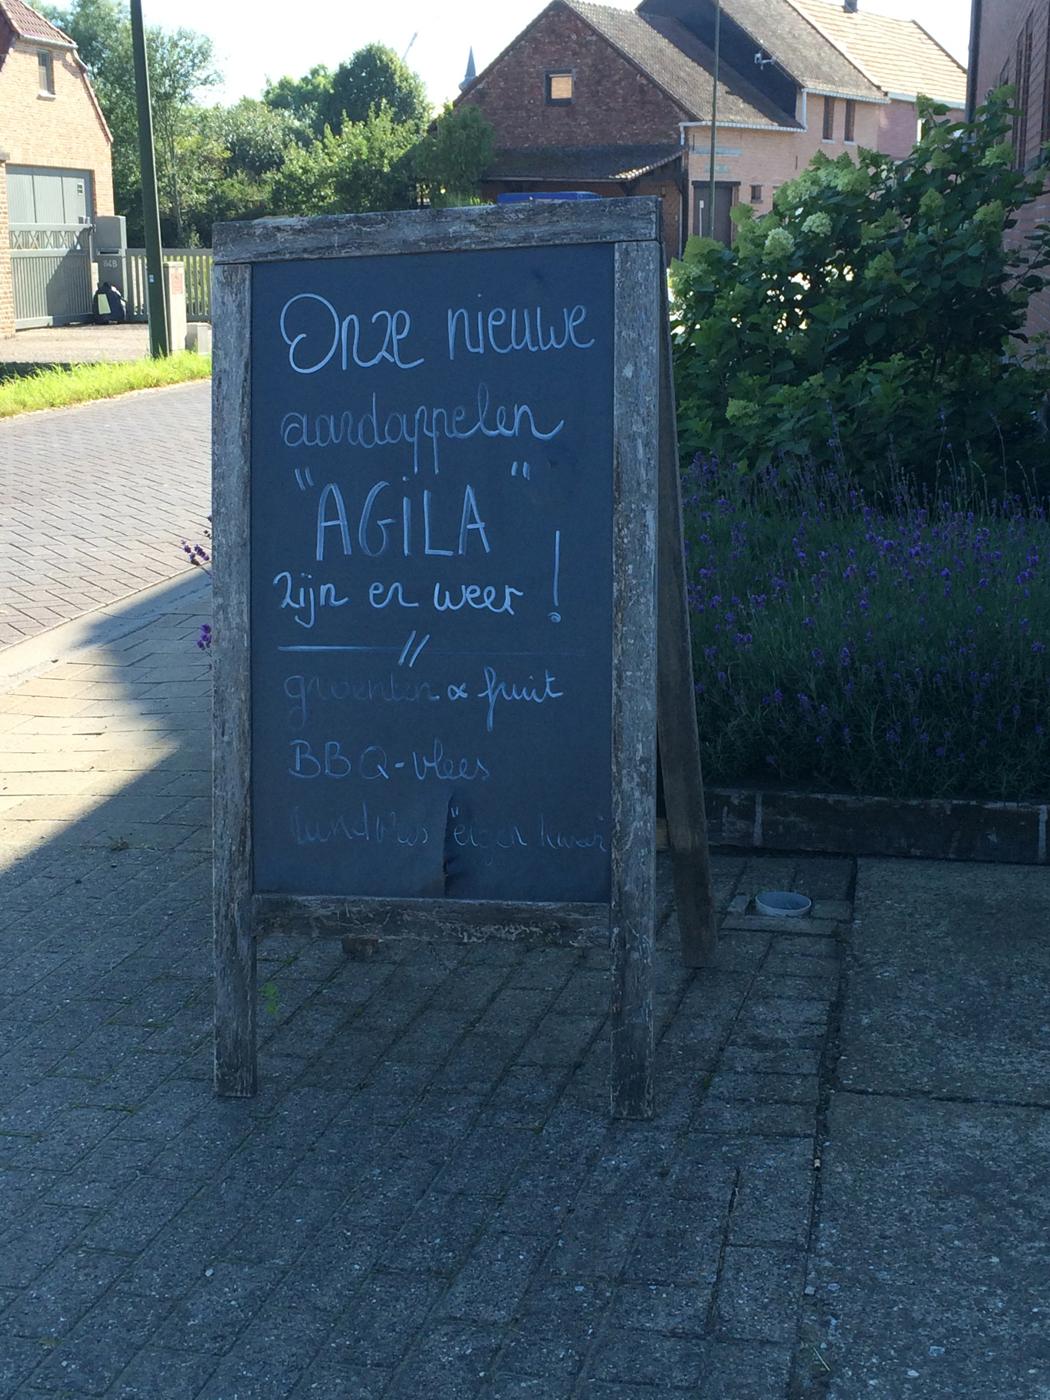 Onze nieuwe
aardappelen
"AGiLA"
zijn er weer!
groenten & fruit
BBQ-vlees
rundvlees "eigen kweek"